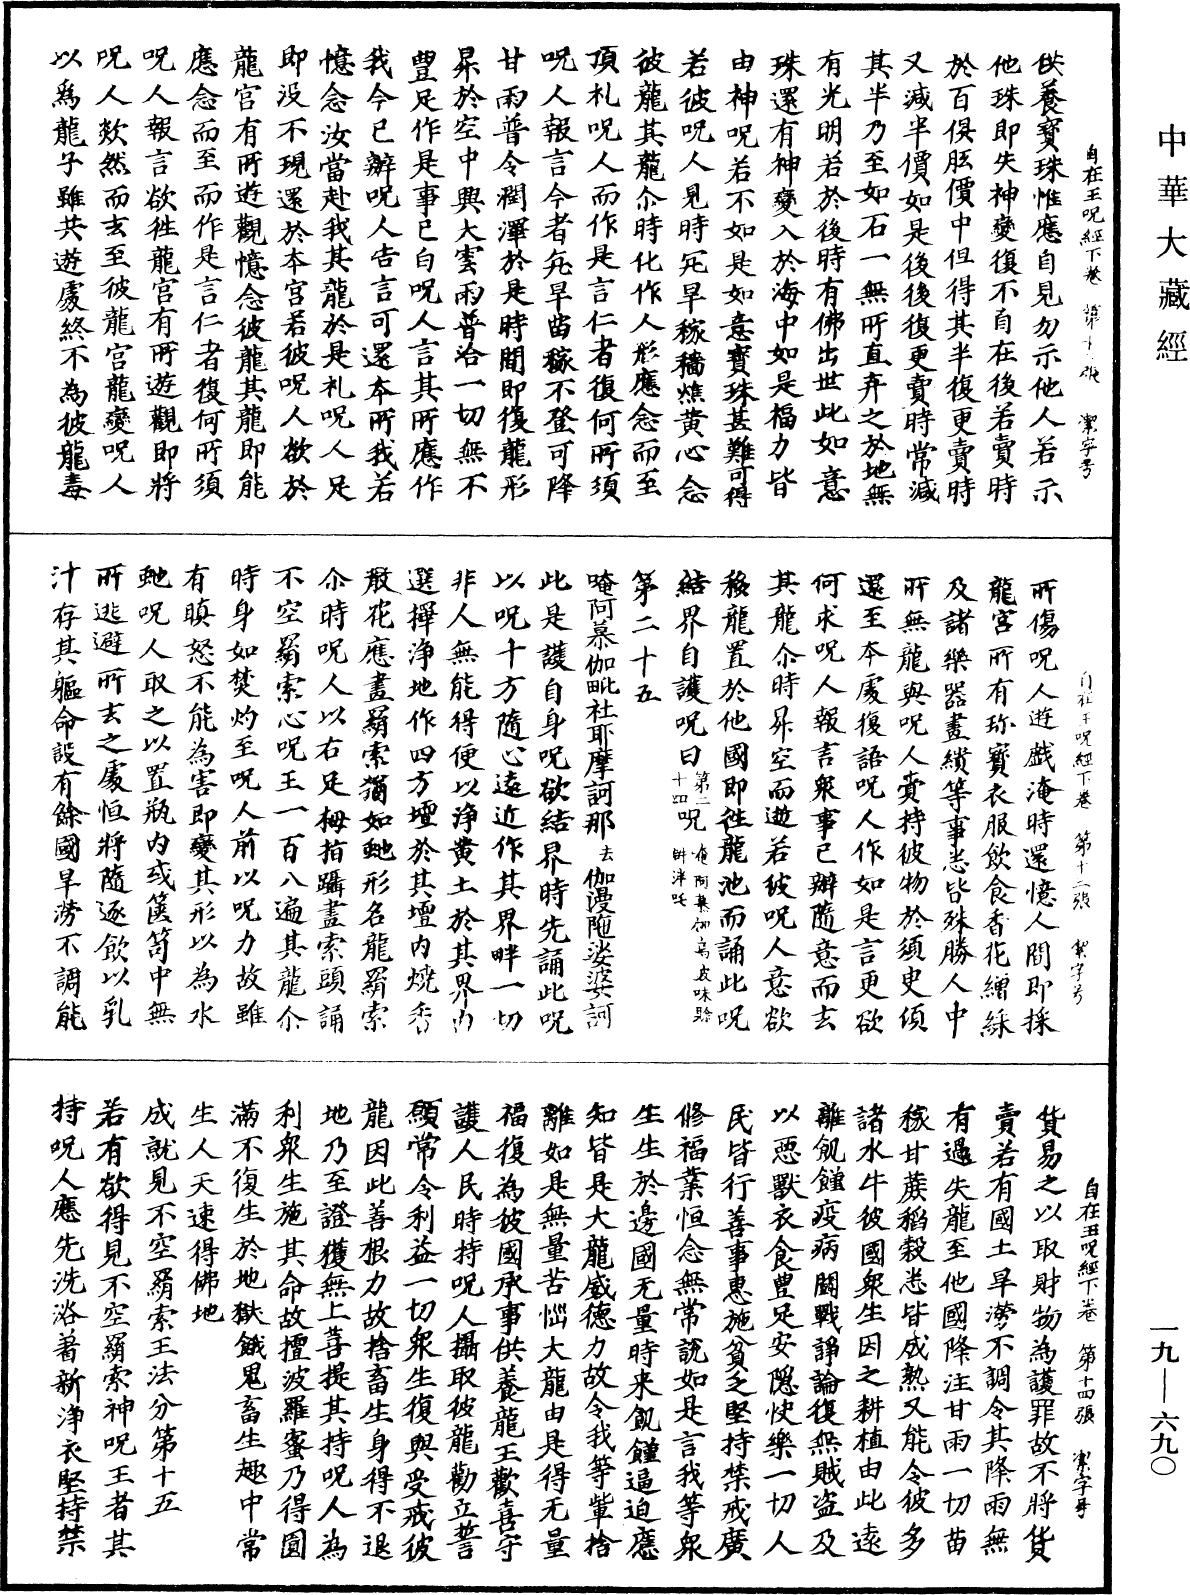 中華大藏經
自在王呪經下卷 第十二張 絜字号
供養寶珠惟應自見勿示他人若示
他珠即失神變復不自在後若賣時
於百俱胝價中但得其半復更賣時
又減半價如是後後復更賣時常減
其半乃至如石一無所直弃之於地無
有光明若於後時有佛出世此如意
珠還有神變入於海中如是福力皆
由神呪若不如是如意寶珠甚難可得
若彼呪人見時亢旱稼穡燋黄心念
彼龍其龍尒時化作人形應念而至
頂礼呪人而作是言仁者復何所須
呪人報言今者亢旱苗稼不登可降
甘雨普令潤澤於是時間即復龍形
昇於空中興大雲雨普洽一切無不
豐足作是事已白呪人言其所應作
我今已辦呪人告言可還本所我若
憶念汝當赴我其龍於是礼呪人足
即没不現還於本宮若彼呪人欲於
龍宮有所遊觀憶念彼龍其龍即能
應念而至而作是言仁者復何所須
呪人報言欲往龍宮有所遊觀即將
呪人欻然而去至彼龍宮龍變呪人
以爲龍子雖共遊處終不為彼龍毒
自在王呪經下卷 第十三張 絜字号
所傷呪人遊戲淹時還憶人間即採
龍宮所有珎寶衣服飲食香花繒綵
及諸樂器畫繢等事悉皆殊勝人中
所無龍與呪人賫持彼物於須更頃
還至本處復語呪人作如是言更欲
何求呪人報言衆事已辦隨意而去
其龍尒時昇空而遊若彼呪人意欲
移龍置於他國即往龍池而誦此呪
結界自護呪曰 第二十四呪
第二十五
唵阿慕伽毗社耶摩訶那去伽漫陁娑婆訶
此是護自身呪欲結界時先誦此呪
以呪十方隨心遠近作其界畔一切
非人無能得便以浄黄土於其界内
選擇浄地作四方壇於其壇内燒香
散花應畫羂索猶如虵形名龍羂索
尒時呪人以右足拇指躡畫索頭誦
不空羂索心呪王一百八遍其龍尒
時身如焚灼至呪人前以呪力故雖
有瞋怒不能為害即變其形以為水
虵呪人取之以置瓶内或篋笥中無
所逃避所去之處恒將隨逐飲以乳
汁存其軀命設有餘國旱澇不調能
自在王呪經下卷 第十四張 絜字号
貨易之以取財物為護罪故不將貨
賣若有國土旱澇不調令其降雨無
有過失龍至他國降注甘雨一切苗
稼甘蔗稻穀悉皆成熟又能令彼多
諸水牛彼國衆生因之耕植由此遠
離飢饉疫病鬪戰諍論復無賊盗及
以惡獸衣食豊足安隱快樂一切人
民皆行善事惠施貧乏堅持禁戒廣
修福業恒念無常說如是言我等衆
生生於邊國无量時来飢饉逼迫應
知皆是大龍威德力故令我等軰捨
離如是無量苦惱大龍由是得无量
福復為彼國承事供養龍王歡喜守
護人民時持呪人攝取彼龍勸立誓
願常令利益一切衆生復與受戒彼
龍因此善根力故捨畜生身得不退
地乃至證獲無上菩提其持呪人為
利衆生施其命故擅波羅蜜乃得圓
滿不復生於地獄餓鬼畜生趣中常
生人天速得佛地
成就見不空羂索王法分第十五
若有欲得見不空羂索神呪王者其
持呪人應先洗浴著新淨衣堅持禁
一九—六九〇